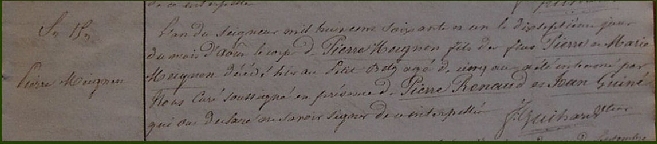 S. 15.
Pierre Meignen
L'an du Seigneur mil huit cent soixante et un le dixseptième jour
du mois d'Août le corps de Pierre Meignen fils de feu Pierre et Marie
Meignen décédé hier au Petit âgé de ans a été inhumé par
Nous Curé soussigné en présence de Pierre Renaud et Jean Guiné
qui ont déclaré ne savoir signer de ce interpellés
J. Guihard